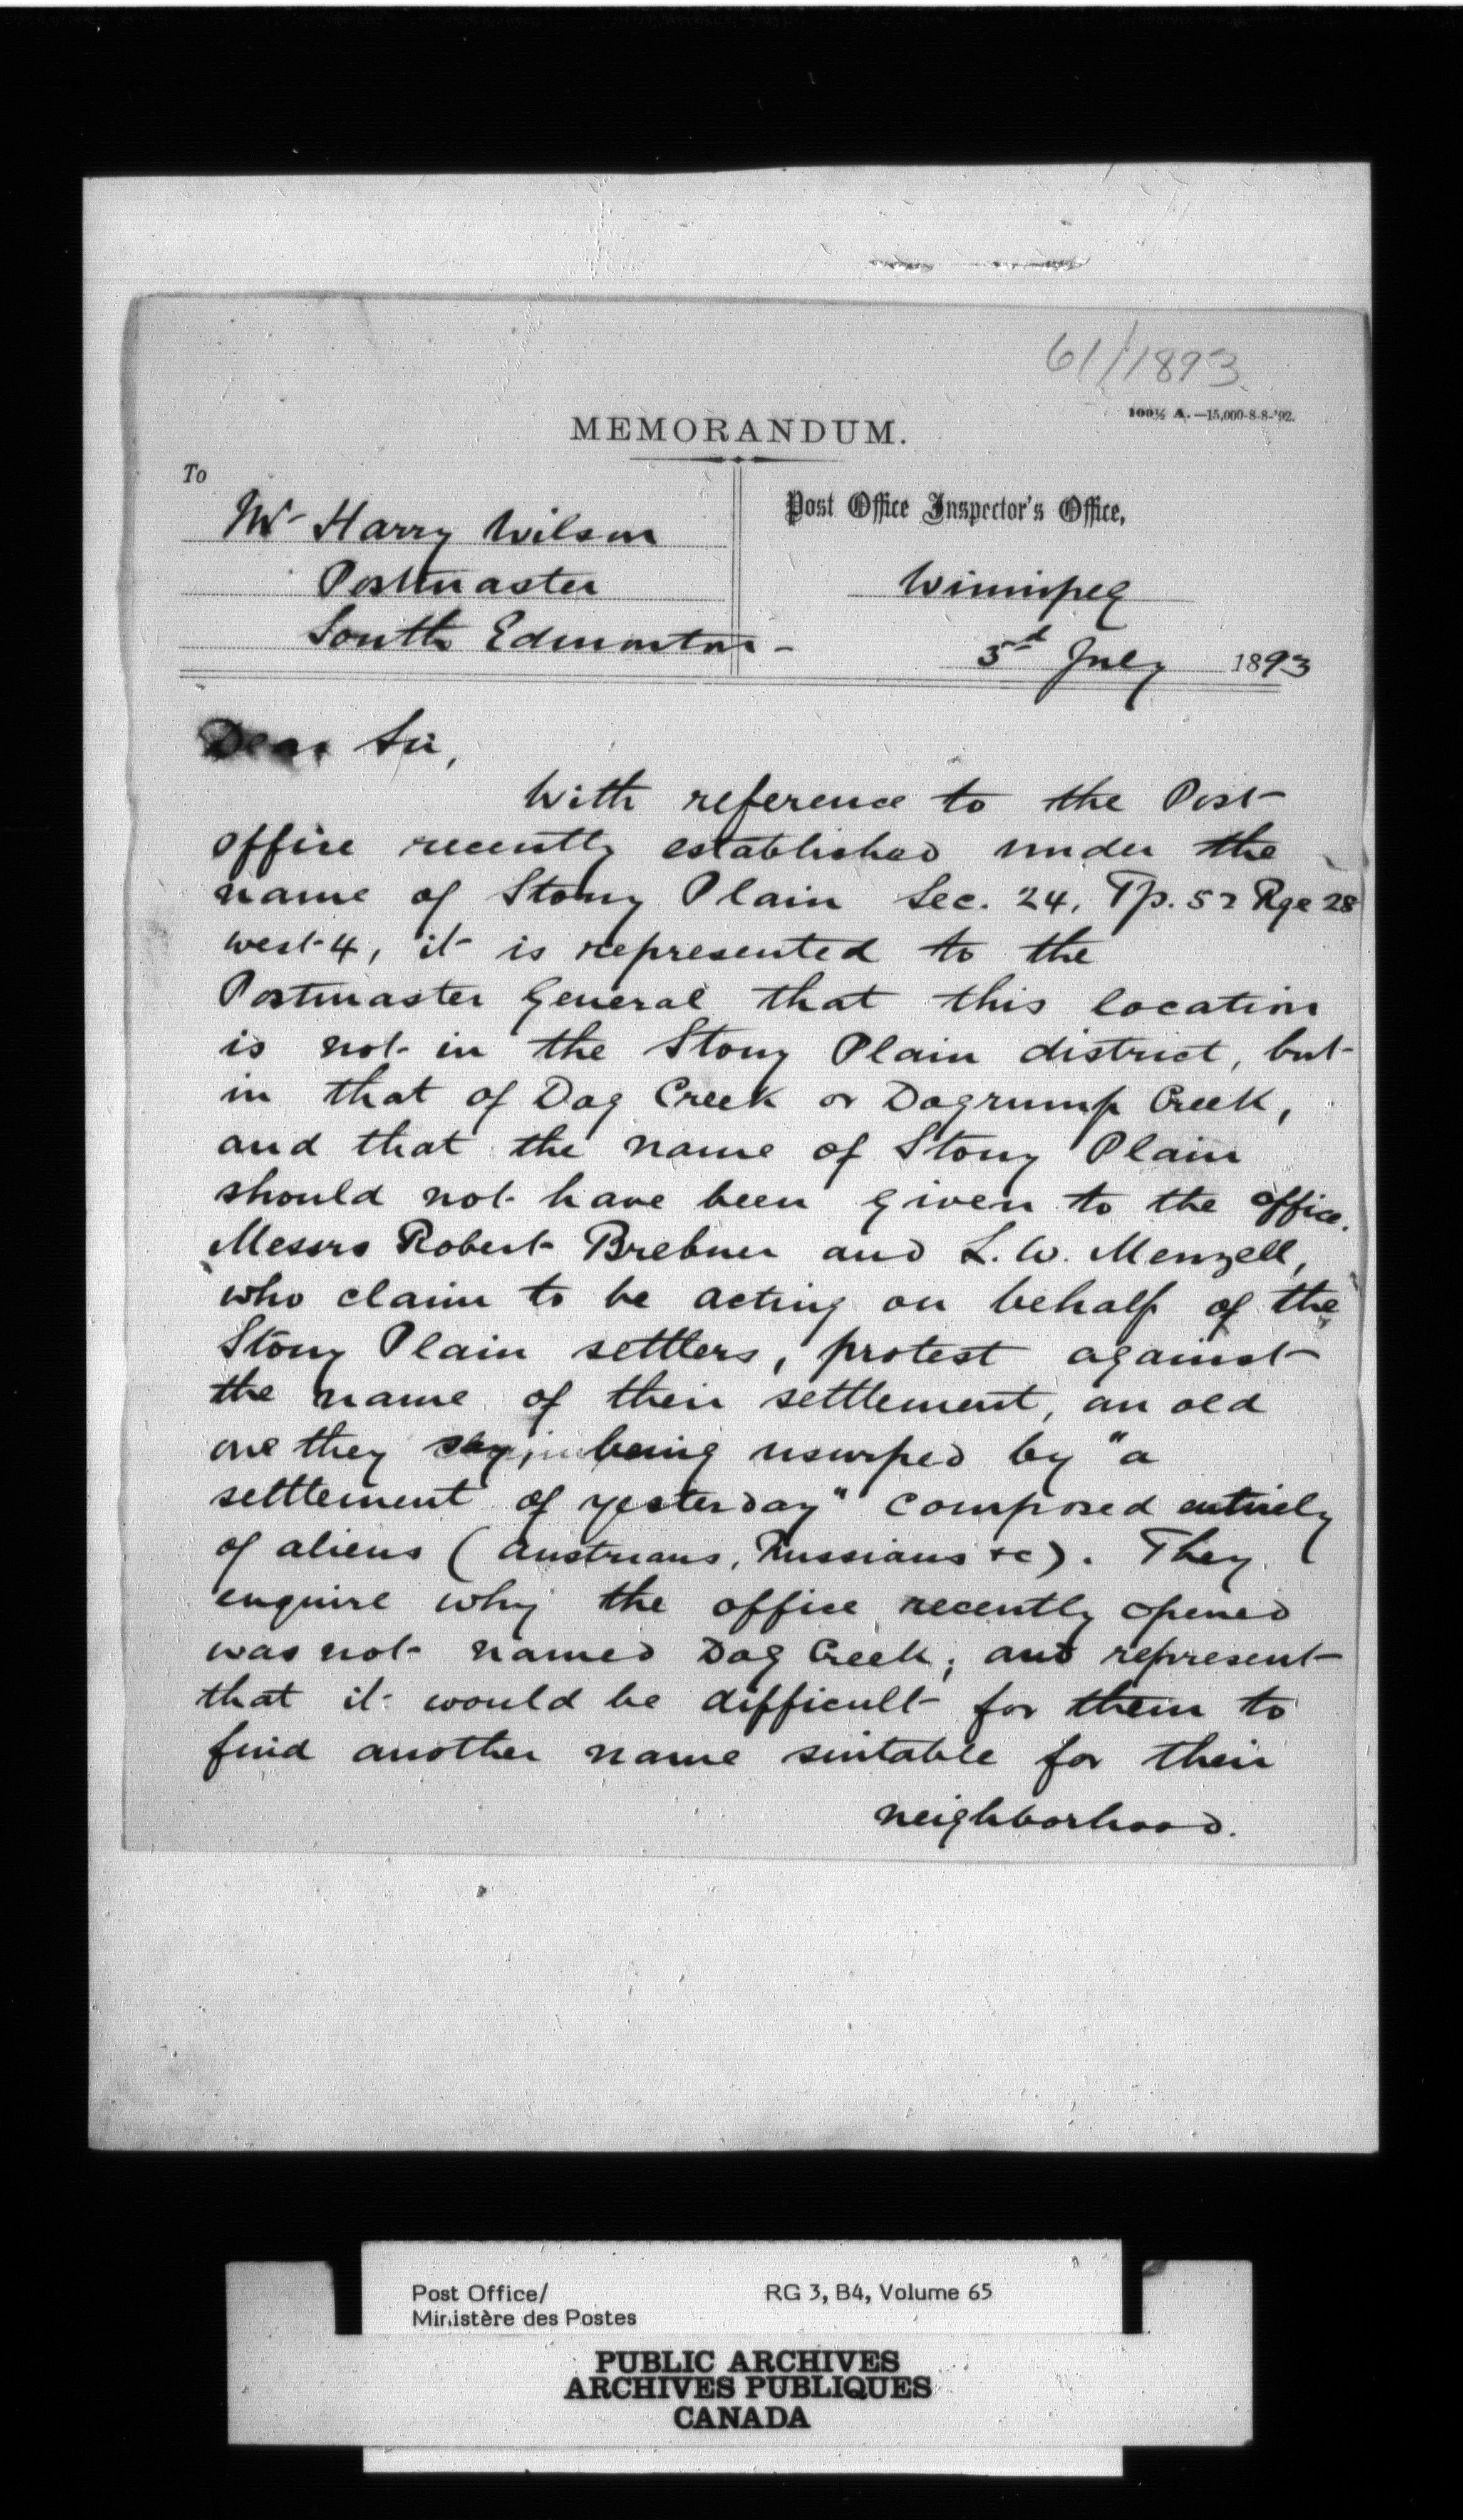 61/1893
100½ A.—15,000-8-8-'92.
MEMORANDUM.
To
Mr Harry Wilson
Postmaster
South Edmonton -
Post Office Inspector's Office,
Winnipeg
3d July 1893
Dear Sir,
With reference to the Post
Office recently established under the
name of Stony Plain Sec. 24, Tp. 52 Rge 28
west 4, it is represented to the
Postmaster General that this location
is not in the Stony Plain district, but
in that of Dog Creek or Dogrump Creek,
and that the name of Stony Plain
should not have been given to the office.
Messrs Robert Brebner and L. W. Menzell,
who claim to be acting on behalf of the
Stony Plain settlers, protest against
the name of their settlement, an old
one they say, being usurped by "a
settlement of yesterday" composed entirely
of aliens (Austrians, Russians &c). They
enquire why the office recently opened
was not named Dog Creek; and represent
that it would be difficult for them to
find another name suitable for their
neighborhood.
Post Office/
Ministère des Postes
RG 3, B4, Volume 65
PUBLIC ARCHIVES
ARCHIVES PUBLIQUES
CANADA